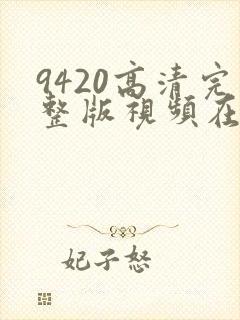 9420高清完
整版視頻在
妃子怒